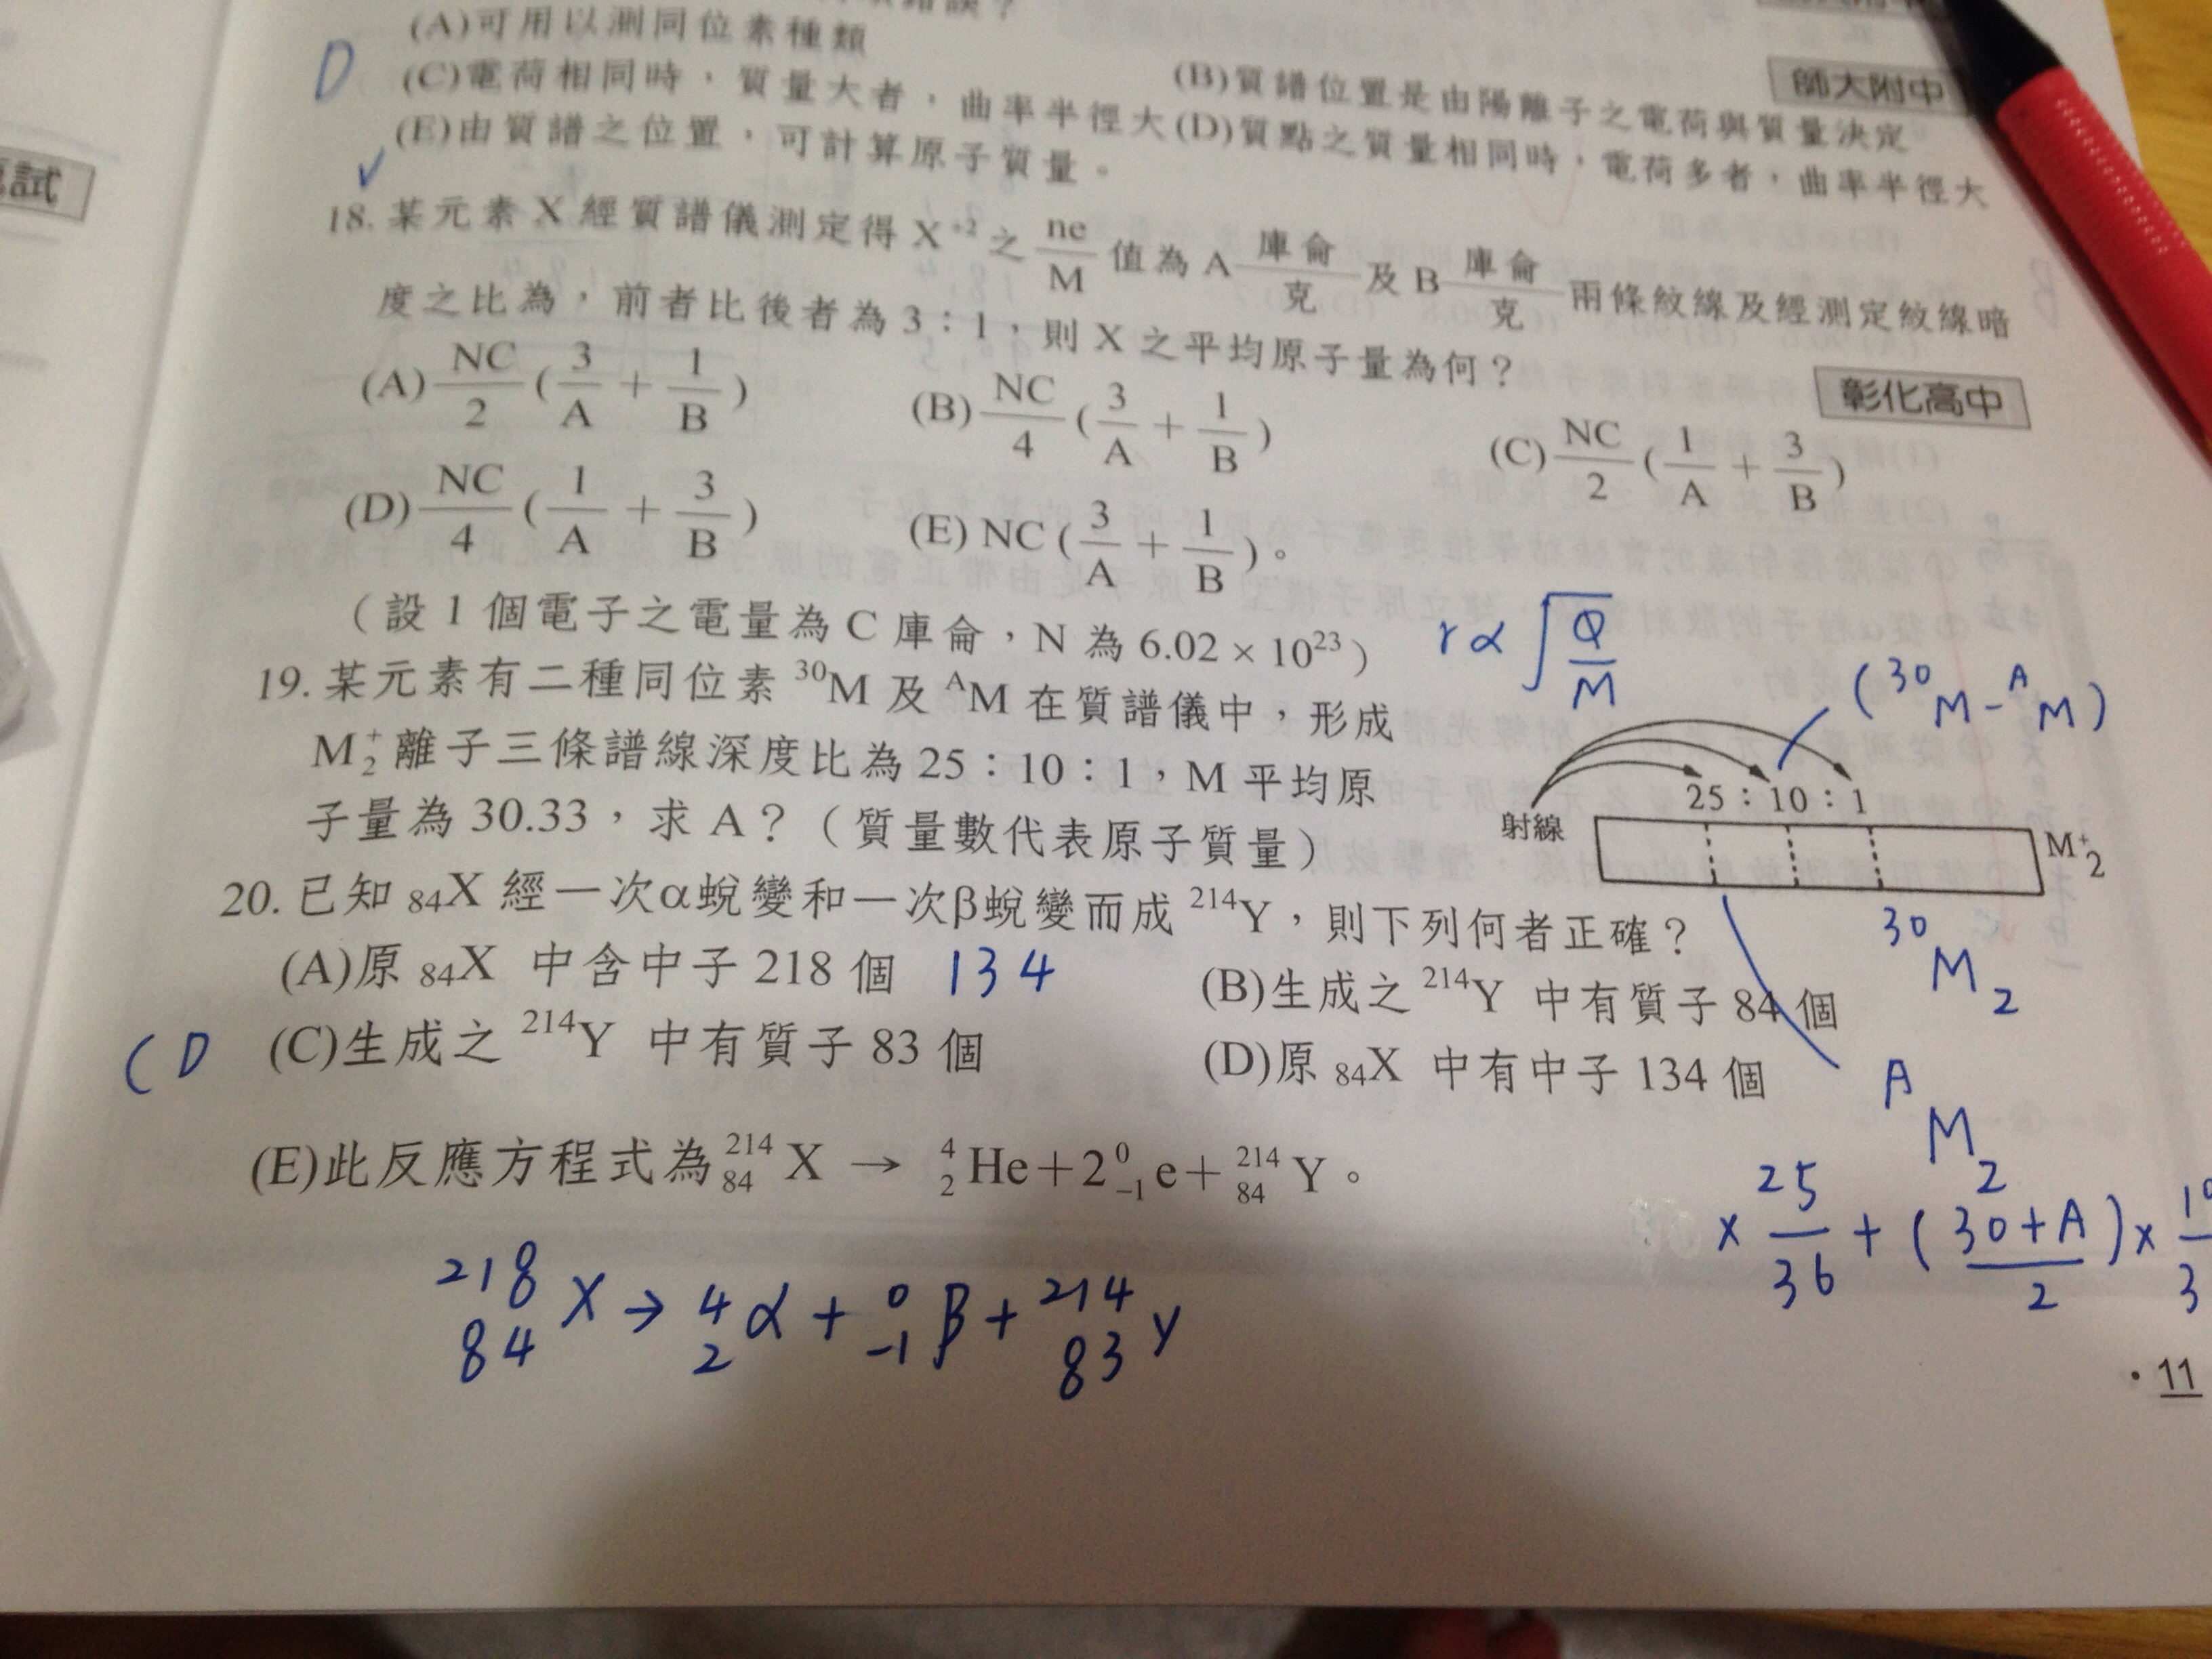 (A)可用以測同位素種類
D
(B)質譜位置是由陽離子之電荷與質量決定
師大附中
(C)電荷相同時，質量大者，曲率半徑大
(D)質點之質量相同時，電荷多者，曲率半徑大
(E)由質譜之位置，可計算原子質量。
試
✓
18. 某元素 X 經質譜儀測定得 X⁺² 之 ne/M 值為 A 庫侖/克 及 B 庫侖/克 兩條紋線及經測定紋線暗
度之比為，前者比後者為 3：1，則 X 之平均原子量為何？
彰化高中
(A) NC/2 (3/A + 1/B)
(B) NC/4 (3/A + 1/B)
(C) NC/2 (1/A + 3/B)
(D) NC/4 (1/A + 3/B)
(E) NC (3/A + 1/B)。
（設 1 個電子之電量為 C 庫侖，N 為 6.02 × 10²³）
r ∝ √(Q/M)
19. 某元素有二種同位素 ³⁰M 及 ᴬM 在質譜儀中，形成
M₂⁺離子三條譜線深度比為 25：10：1，M 平均原
子量為 30.33，求 A？（質量數代表原子質量）
(³⁰M-ᴬM)
25：10：1
射線
M⁺₂
³⁰M₂
ᴬM₂
20. 已知 ₈₄X 經一次α蛻變和一次β蛻變而成 ²¹⁴Y，則下列何者正確？
(A)原 ₈₄X 中含中子 218 個 134
(B)生成之 ²¹⁴Y 中有質子 84 個
CD
(C)生成之 ²¹⁴Y 中有質子 83 個
(D)原 ₈₄X 中有中子 134 個
(E)此反應方程式為 ²¹⁴₈₄X → ⁴₂He+2⁰₋₁e+²¹⁴₈₄Y。
× 25/36 + (30+A/2) ×
²¹⁸₈₄X → ⁴₂α + ⁰₋₁β + ²¹⁴₈₃Y
·11